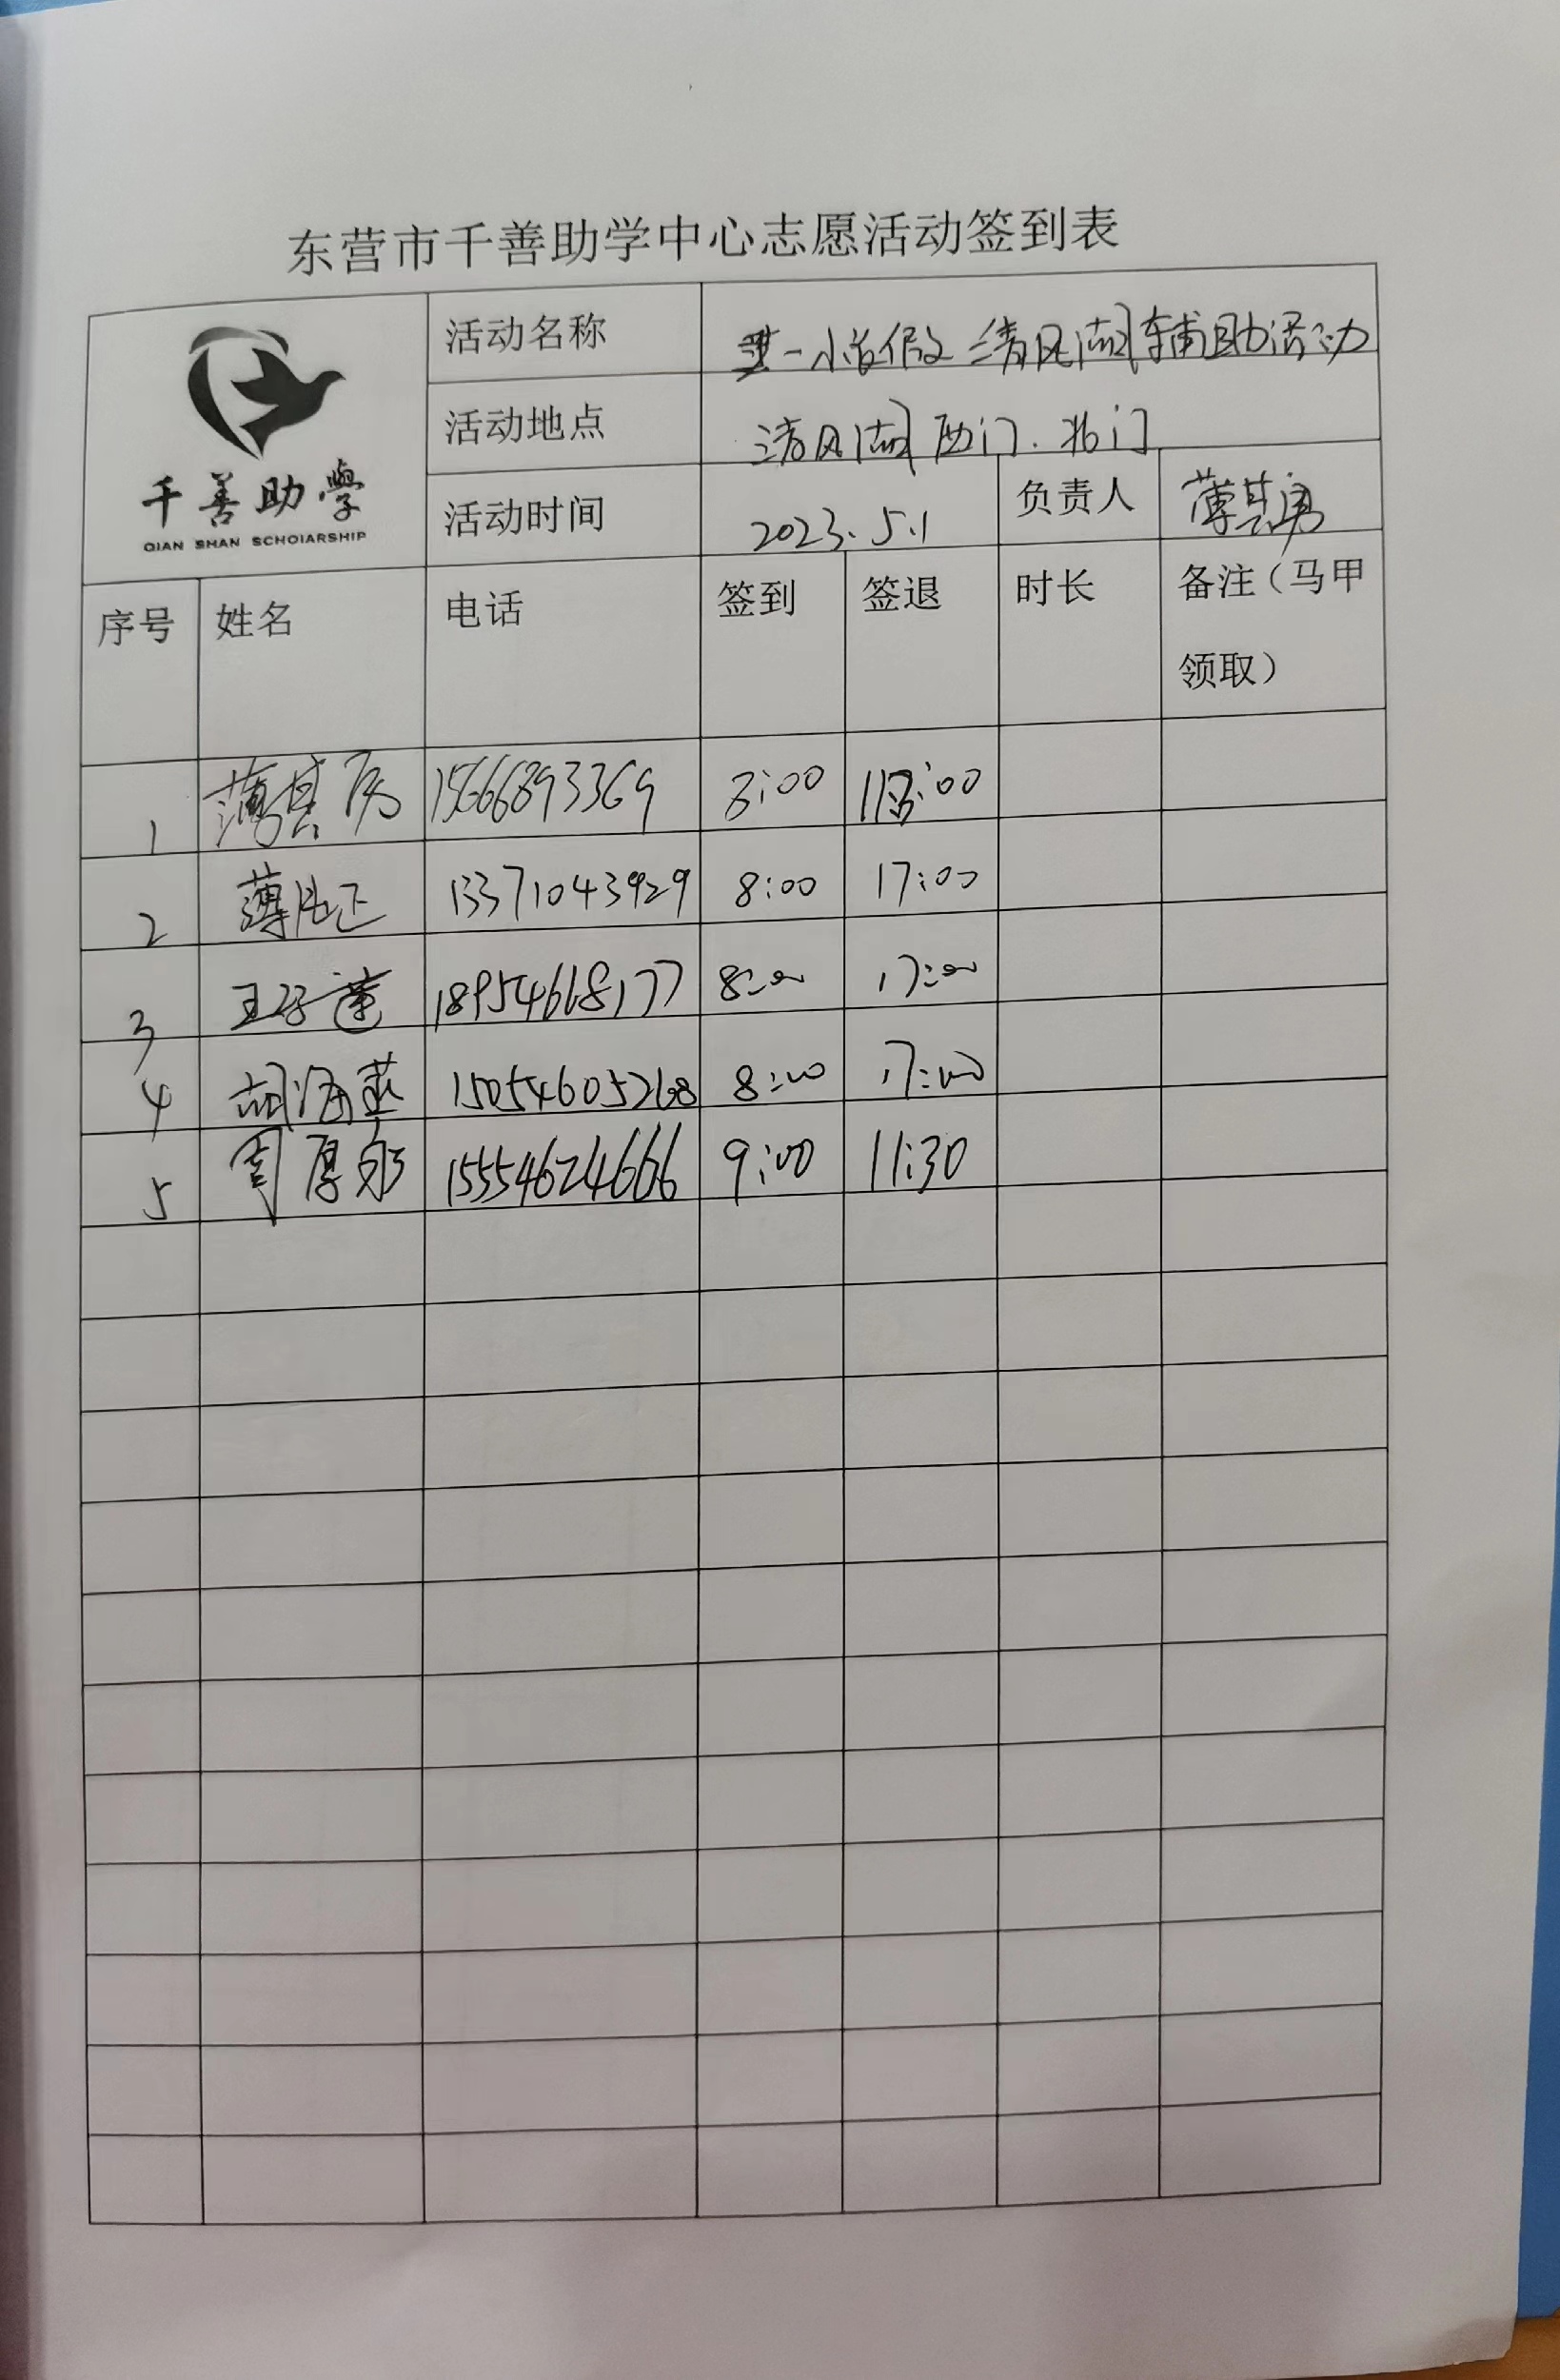 东营市千善助学中心志愿活动签到表
千善助學
QIAN SHAN SCHOlARSHIP
活动名称 一小长假 清风湖辅助活动
活动地点 清风湖西门.北门
活动时间 2023.5.1 负责人 薄其勇
序号 姓名 电话 签到 签退 时长 备注（马甲领取）
1 薄其 15666893369 8:00 :00
2 薄 13371043929 8:00 17:00
3 王 莲 18954668177 8:00 17:00
4 胡海燕 15054605268 8:00 17:00
5 周厚 15554624666 9:00 11:30